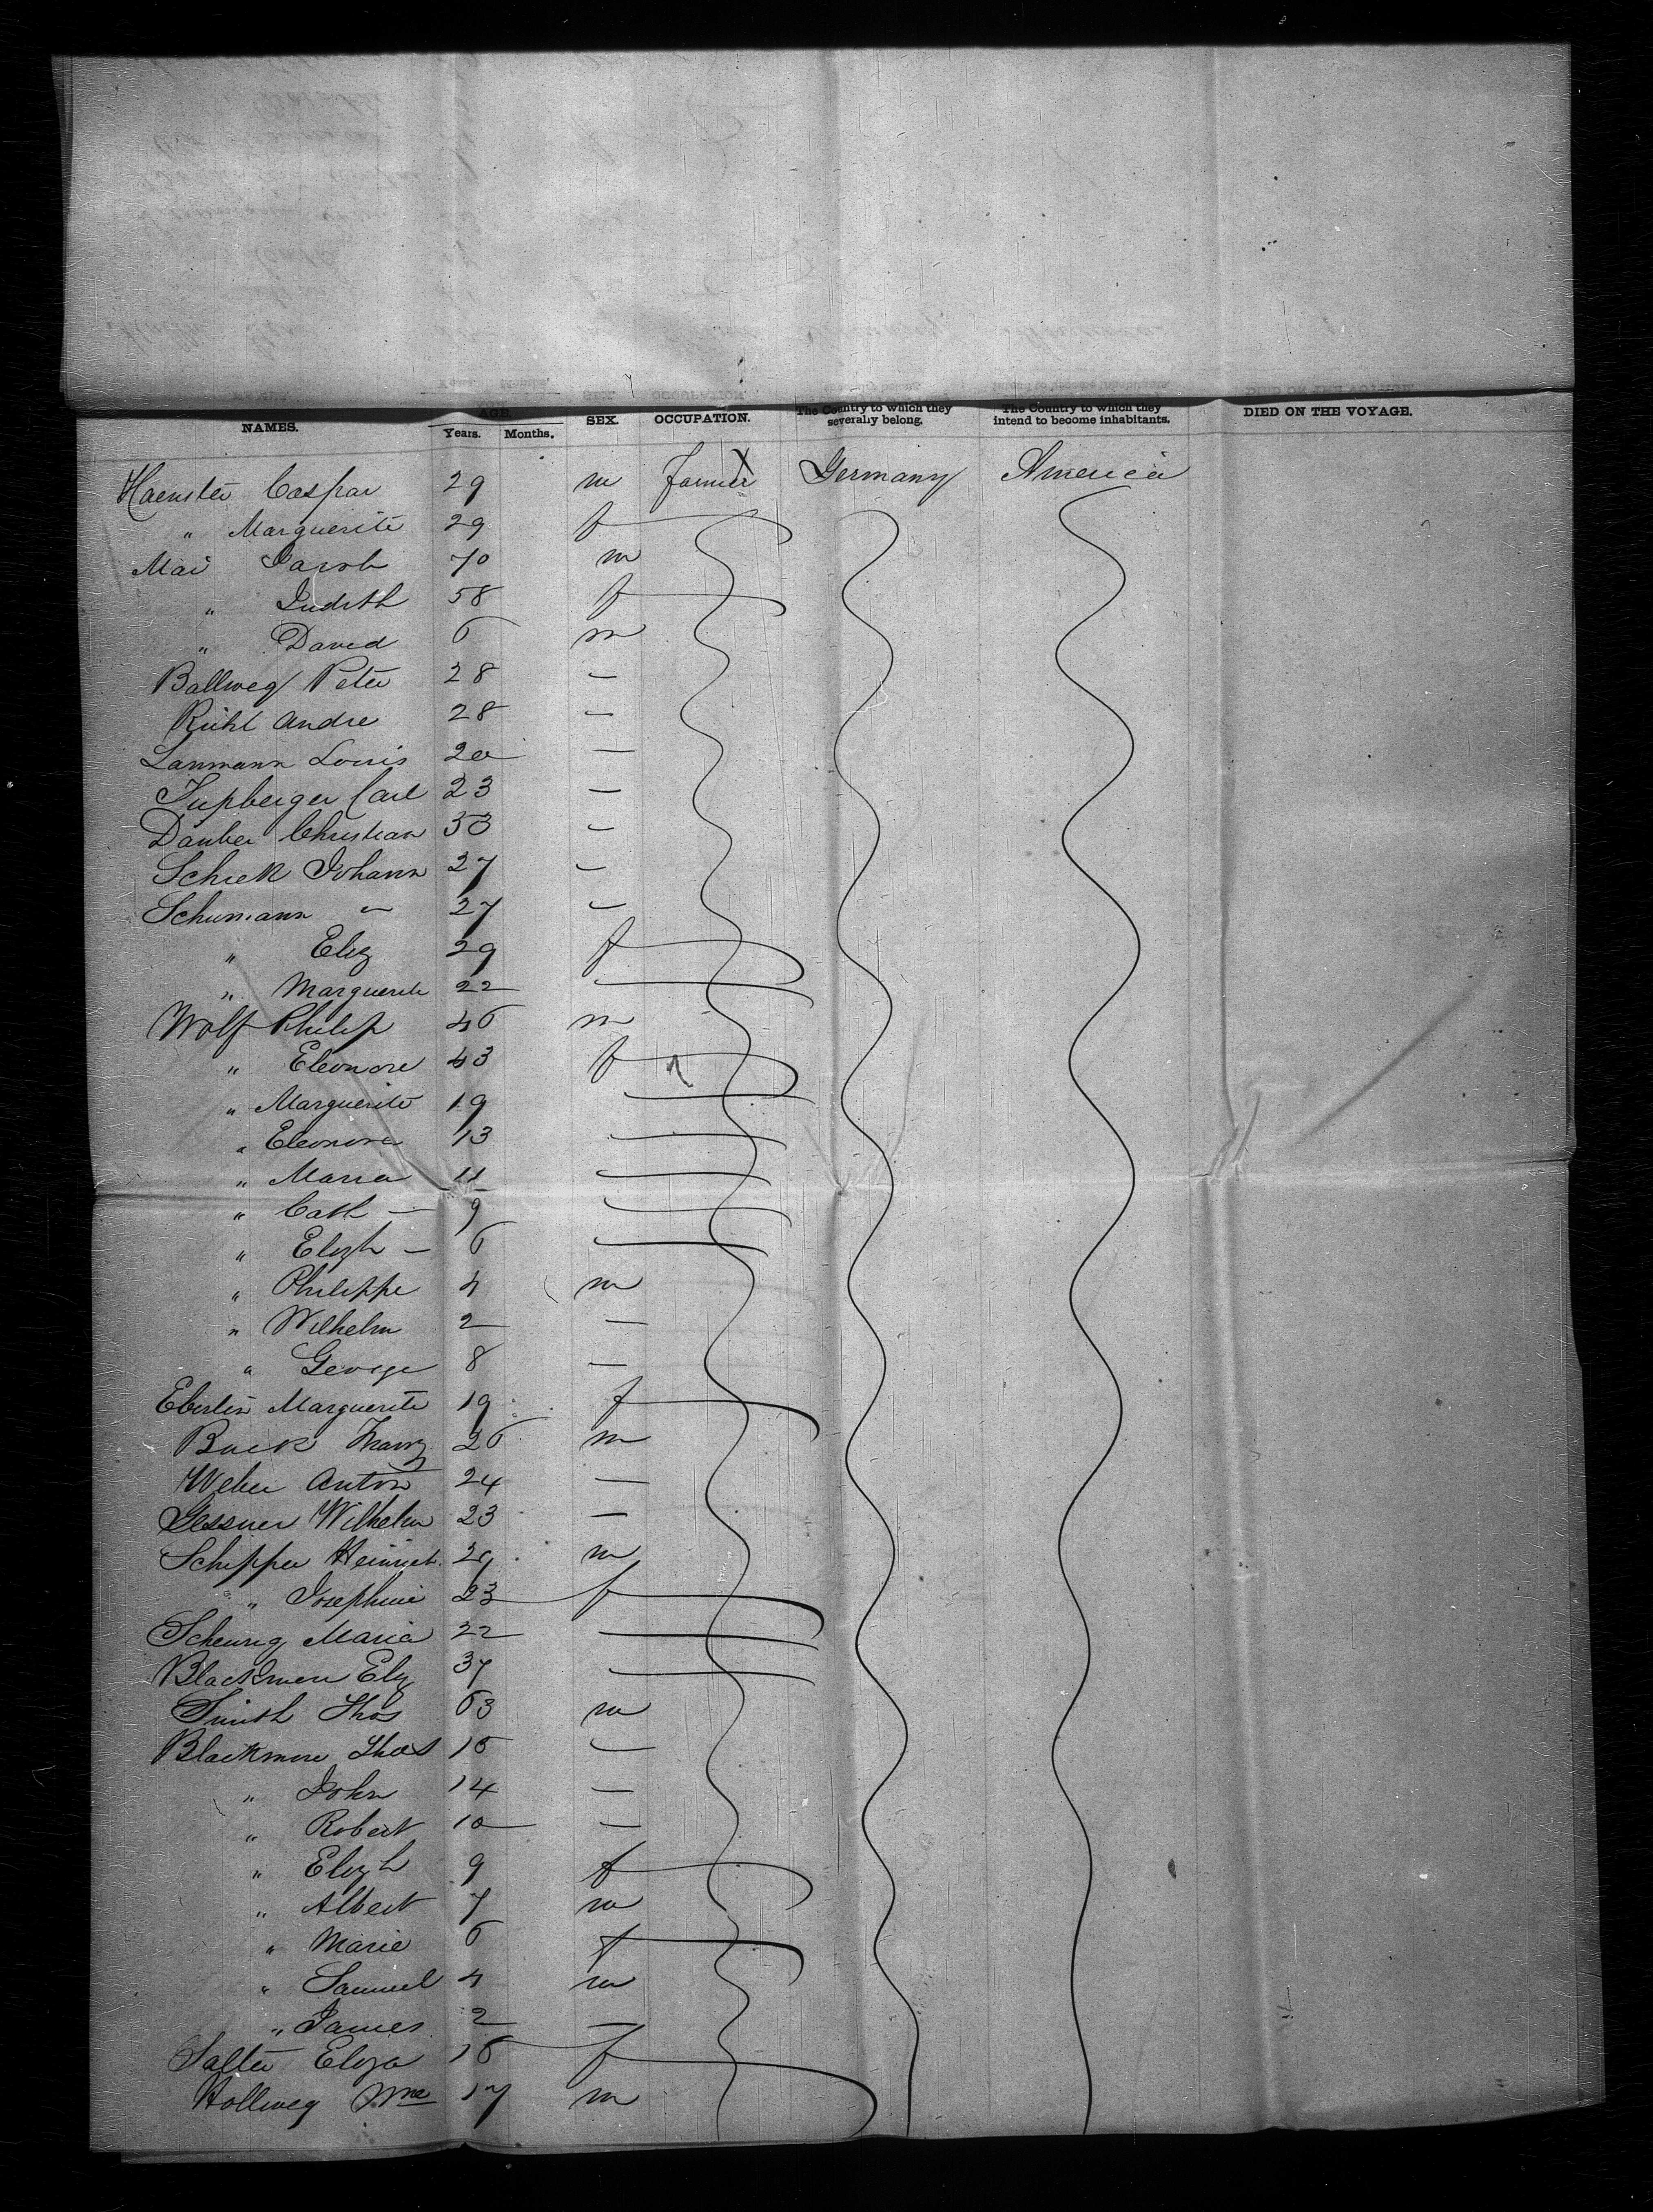 NAMES. AGE. Years. Months. SEX. OCCUPATION. The Country to which they severally belong. The Country to which they intend to become inhabitants. DIED ON THE VOYAGE.
Caspar 29 m farmer Germany America
" Marguerite 29 f
Mai Jacob 70 m
" Judith 58 f
" David 6 m
Ballweg Peter 28 —
Rühl Andre 28 —
Lanmann Louis 20 —
Carl 23 —
Dauber Christian 33 —
Schiek Johann 27 —
Schumann " 27 —
" Eliz 29 f
" Marguerite 22 —
Wolf Philip 46 m
" Eleonore 43 f
" Marguerite 19 —
" Eleonore 13 —
" Maria 11 —
" Cath — 9 —
" Elizh — 6 —
" Philippe 4 m
" Wilhelm 2 —
" George 8 —
Eberlin Marguerite 19 f
Buck Franz 26 m
Weber Anton 24 —
Gessner Wilhelm 23 —
Schipper Heinrich 29 m
" Josephine 23 f
Scheurig Maria 22 —
Blackmore Eliz 37 —
Smith Thos 63 m
Blackmore Thos 16 —
" John 14 —
" Robert 10 —
" Elizh 9 f
" Albert 7 m
" Marie 6 f
" Samuel 4 m
" James 2 —
Salter Eliza 18 f
Hollweg Wm 17 m